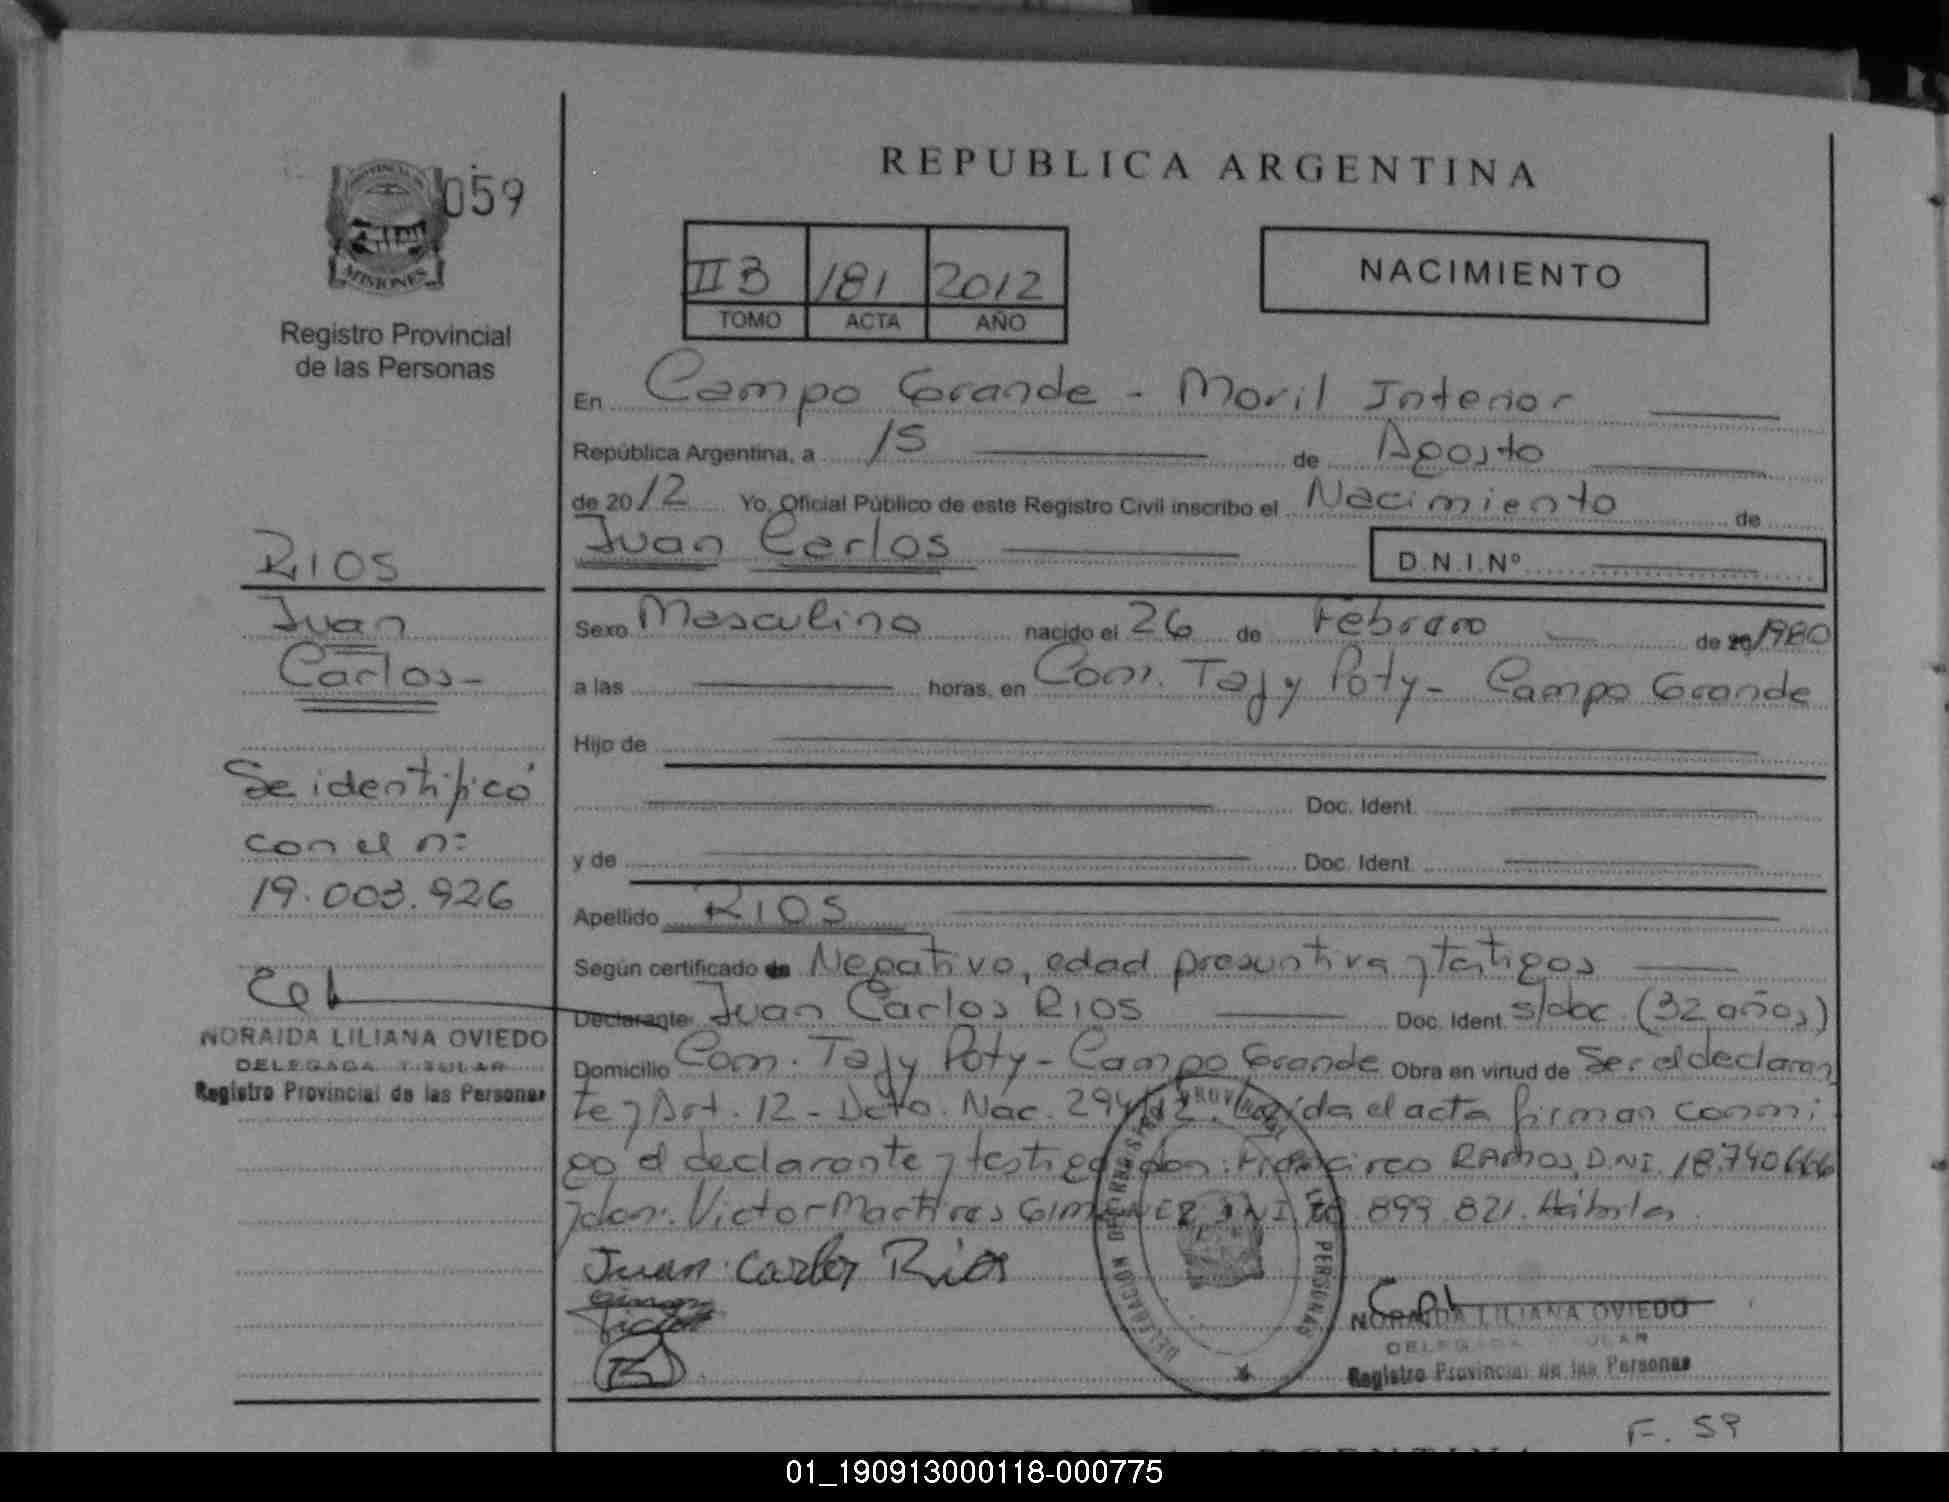 059
PROVINCIA DE
MISIONES
Registro Provincial
de las Personas
REPUBLICA ARGENTINA
II B 181 2012
TOMO ACTA AÑO
NACIMIENTO
En Campo Grande - Movil Interior
República Argentina, a 15 de Agosto
de 2012 Yo, Oficial Público de este Registro Civil inscribo el Nacimiento de
Juan Carlos D.N.I.Nº
Sexo Masculino nacido el 26 de Febrero de 20 1980
a las horas, en Com. Tajy Poty - Campo Grande
Hijo de
Doc. Ident.
y de Doc. Ident.
Apellido RIOS
Según certificado de Negativo, edad presuntiva y testigos
Declarante Juan Carlos RIOS Doc. Ident. s/doc. (32 años)
Domicilio Com. Tajy Poty - Campo Grande Obra en virtud de Ser el declaran
te y Art. 12 - Dcto. Nac. 294/12. Leída el acta firman conmi
go el declarante y testigos don: Francisco RAMOS, D.N.I. 18.740.666
y don: Victor Martires GIMENEZ DNI 899.821. Hábiles
Juan Carlos Rios
NORAIDA LILIANA OVIEDO
DELEGADA TITULAR
Registro Provincial de las Personas
F. 59
RIOS
Juan
Carlos-
Se identificó
con el nº
19.003.926
NORAIDA LILIANA OVIEDO
DELEGADA TITULAR
Registro Provincial de las Personas
REPUBLICA ARGENTINA
01_190913000118-000775